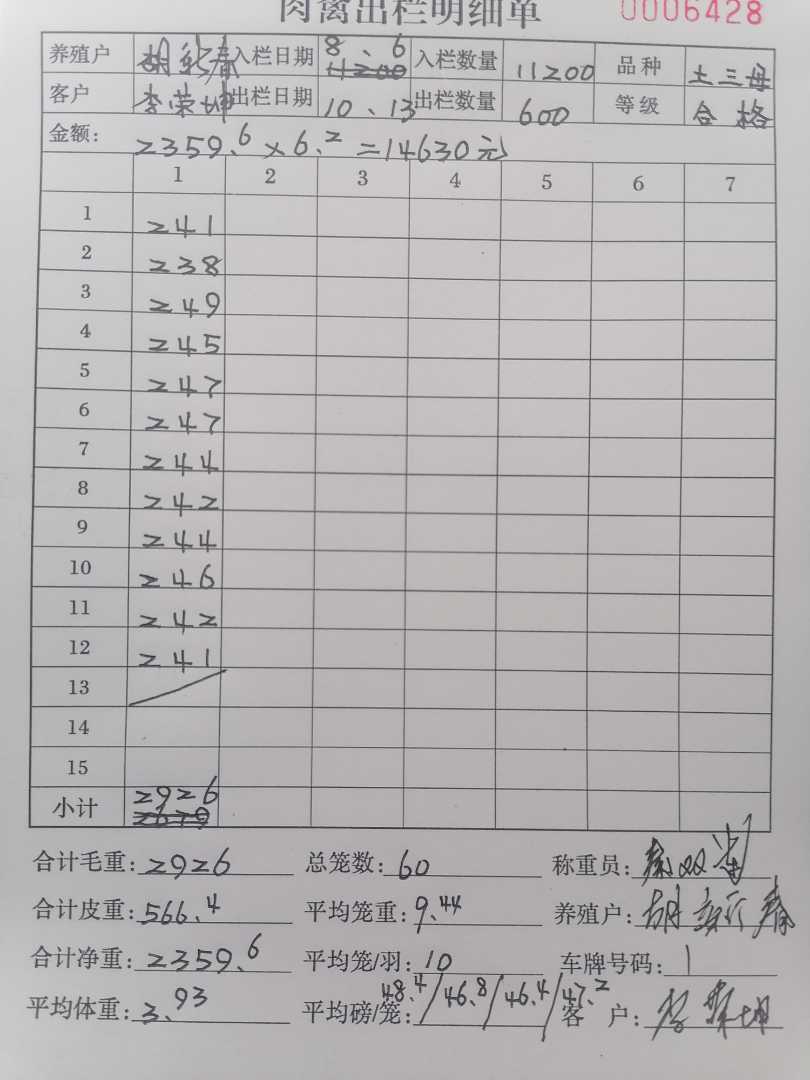 肉禽出栏明细单 0006428
养殖户 胡新春 入栏日期 8、6 入栏数量 11200 品种 土三母
客户 李荣坤 出栏日期 10、13 出栏数量 600 等级 合格
金额: 2359.6×6.2=14630元
1 2 3 4 5 6 7
1 241
2 238
3 249
4 245
5 247
6 247
7 244
8 242
9 244
10 246
11 242
12 241
13
14
15
小计 2926
合计毛重: 2926 总笼数: 60 称重员:
合计皮重: 566.4 平均笼重: 9.44 养殖户: 胡新春
合计净重: 2359.6 平均笼/羽: 10 车牌号码: 1
平均体重: 3.93 平均磅/笼: 48.4/46.8/46.4/47.2 客户: 李荣坤